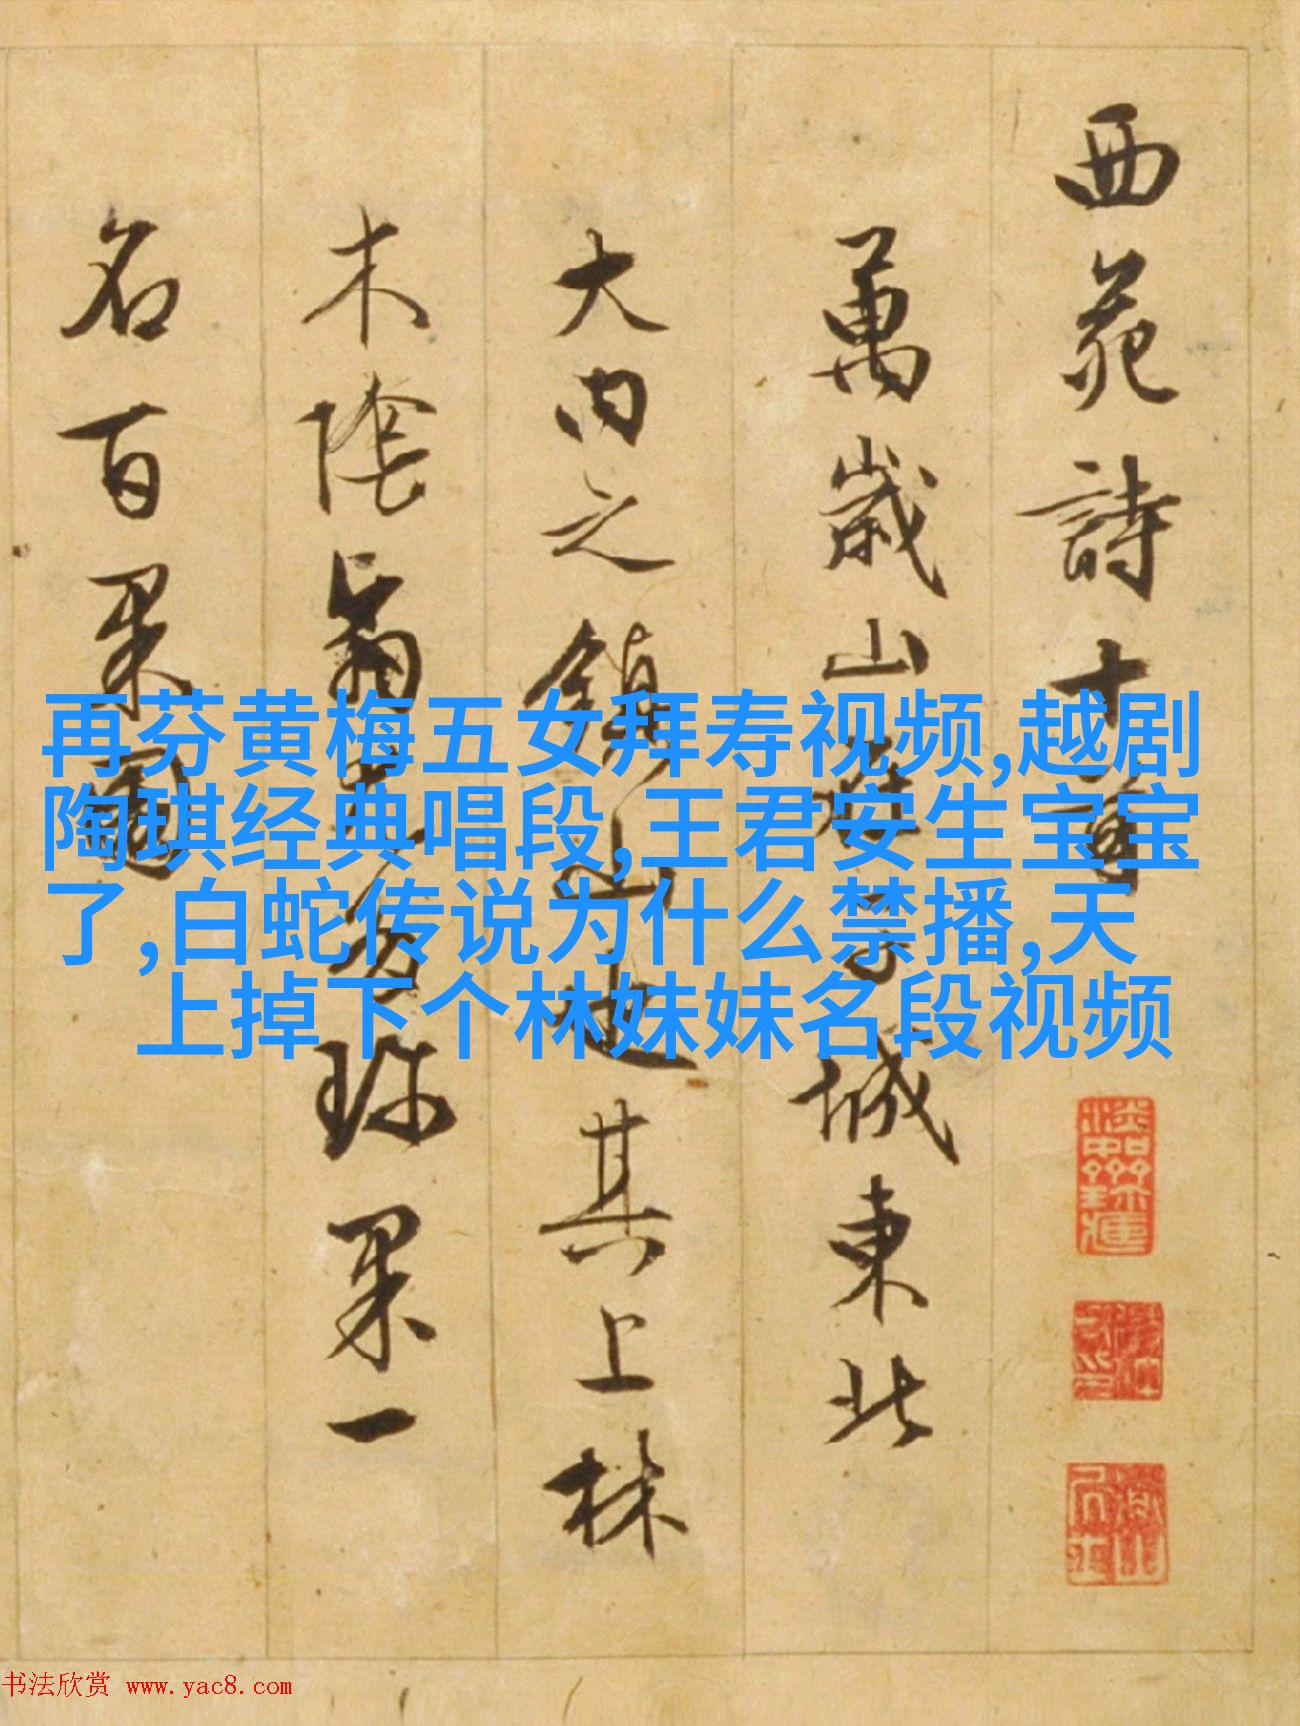 西苑詩十
萬歲山在子城東北
大内之鎮山也其上林
木陰翳尤多珍果一
名百果園
再芬黄梅五女拜寿视频,越剧
陶琪经典唱段,王君安生宝宝
了,白蛇传说为什么禁播,天
上掉下个林妹妹名段视频
书法欣赏 www.yac8.com